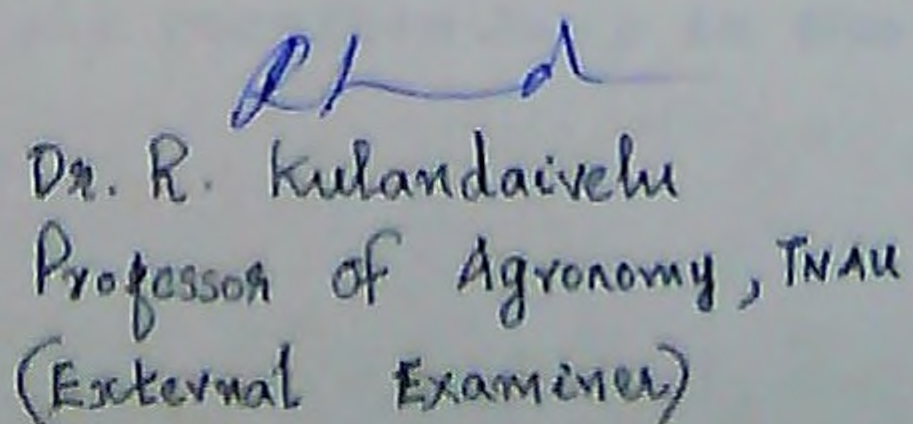 Dr. R. Kulandaivelu
Professor of Agronomy, TNAU
(External Examiner)